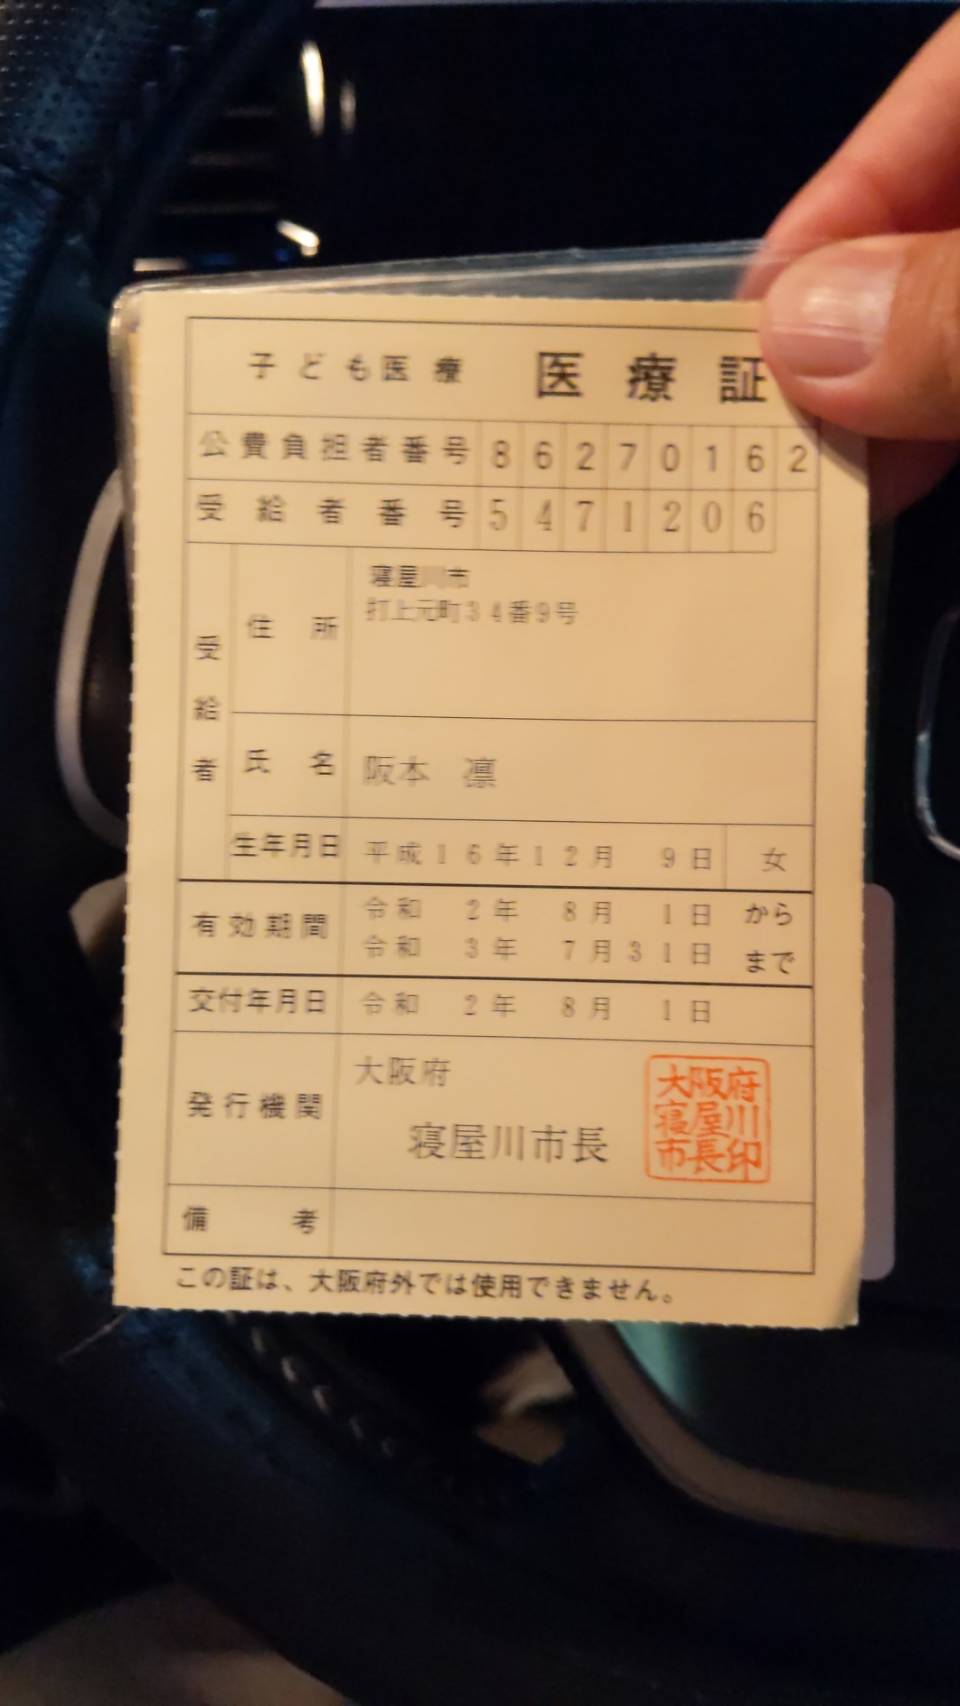 子ども医療 医療証
公費負担者番号 86270162
受給者番号 5471206
受給者
住所 寝屋川市
打上元町34番9号
氏名 阪本 凛
生年月日 平成16年12月 9日 女
有効期間 令和 2年 8月 1日 から
令和 3年 7月31日 まで
交付年月日 令和 2年 8月 1日
発行機関 大阪府
寝屋川市長
大阪府
寝屋川
市長印
備考
この証は、大阪府外では使用できません。